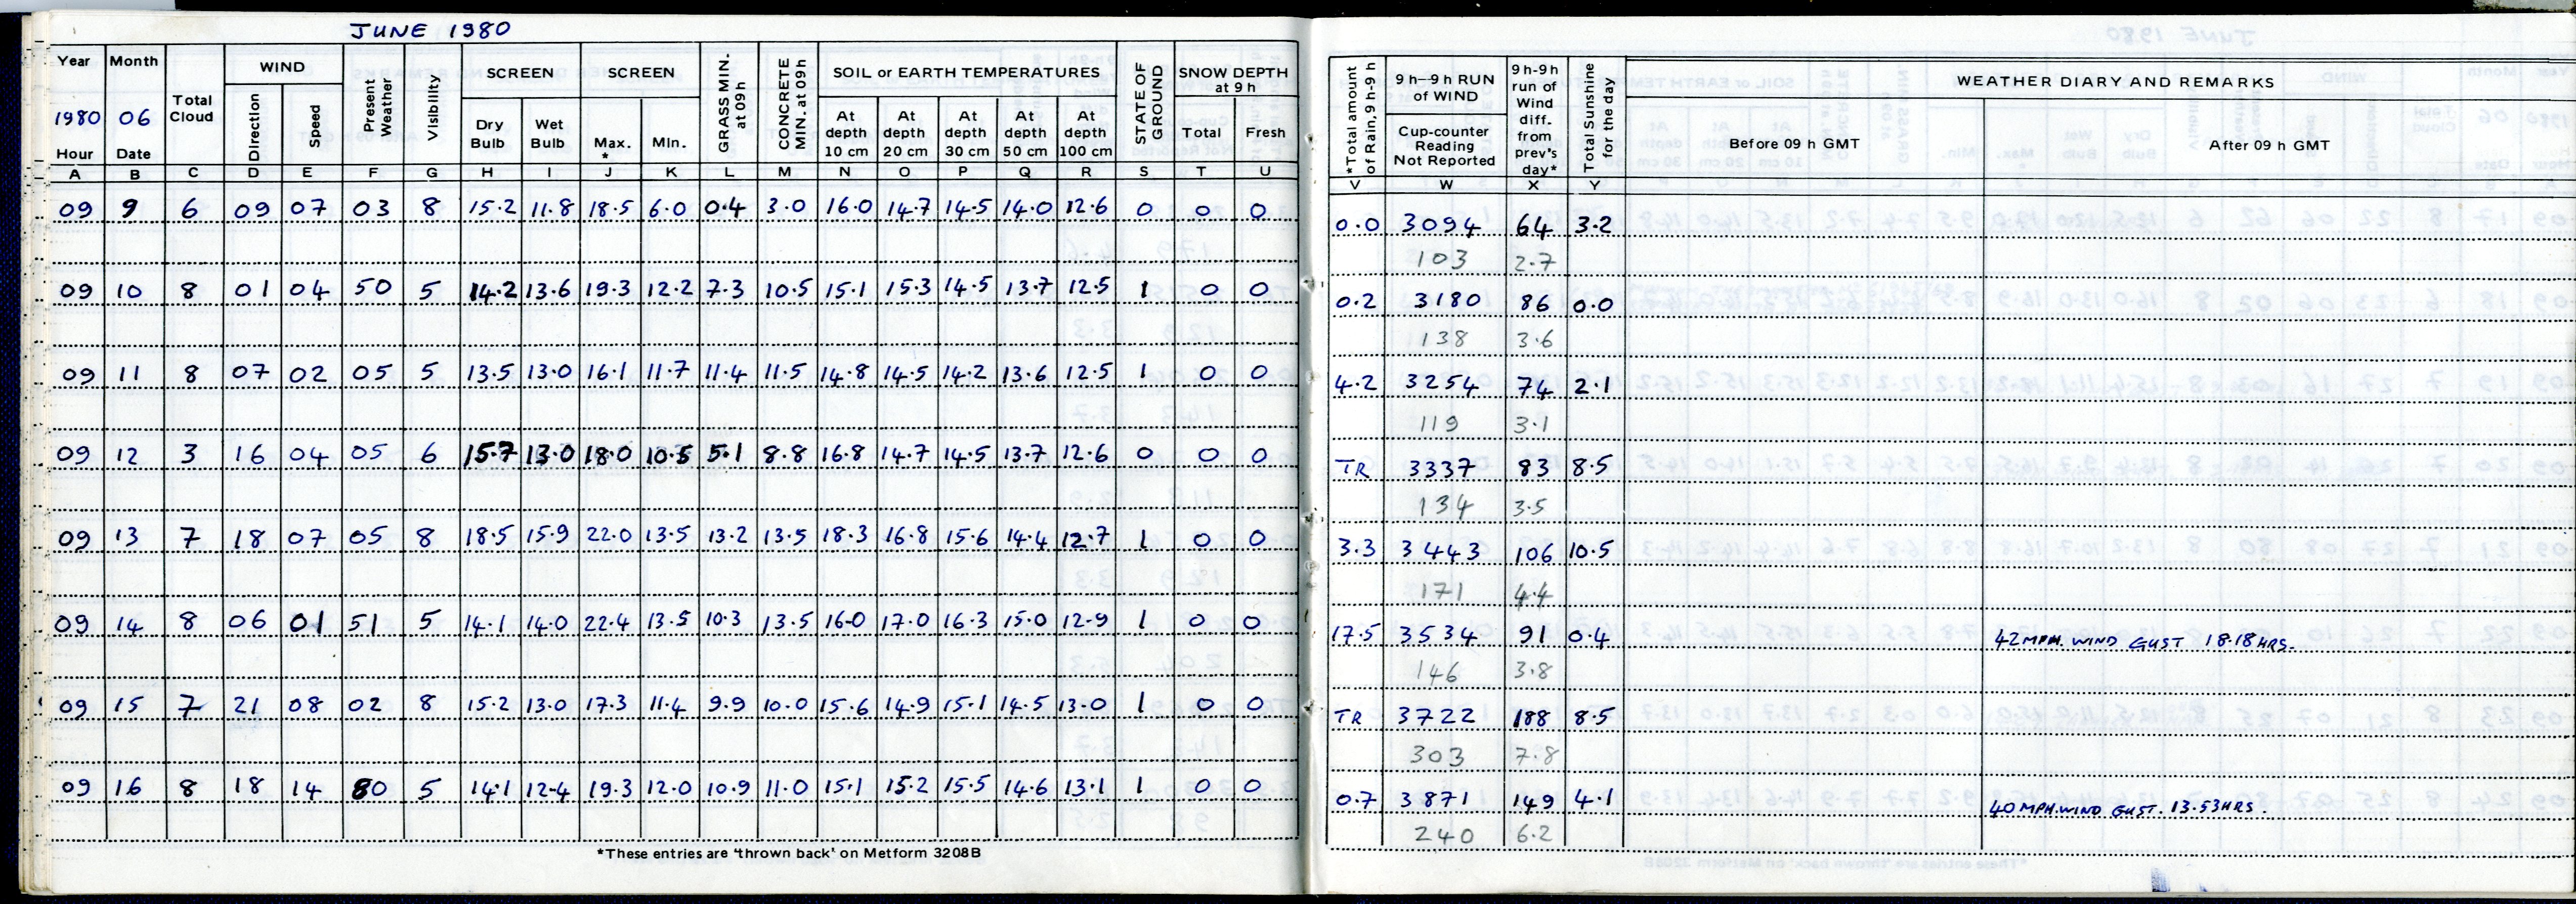 JUNE 1980
Year Month Total Cloud WIND Present Weather Visibility SCREEN SCREEN GRASS MIN. at 09h CONCRETE MIN. at 09h SOIL or EARTH TEMPERATURES STATE OF GROUND SNOW DEPTH at 9 h
1980 06 Direction Speed Dry Bulb Wet Bulb Max. * Min. At depth 10 cm At depth 20 cm At depth 30 cm At depth 50 cm At depth 100 cm Total Fresh
Hour Date
A B C D E F G H I J K L M N O P Q R S T U
09 9 6 09 07 03 8 15.2 11.8 18.5 6.0 0.4 3.0 16.0 14.7 14.5 14.0 12.6 0 0 0
09 10 8 01 04 50 5 14.2 13.6 19.3 12.2 7.3 10.5 15.1 15.3 14.5 13.7 12.5 1 0 0
09 11 8 07 02 05 5 13.5 13.0 16.1 11.7 11.4 11.5 14.8 14.5 14.2 13.6 12.5 1 0 0
09 12 3 16 04 05 6 15.7 13.0 18.0 10.5 5.1 8.8 16.8 14.7 14.5 13.7 12.6 0 0 0
09 13 7 18 07 05 8 18.5 15.9 22.0 13.5 13.2 13.5 18.3 16.8 15.6 14.4 12.7 1 0 0
09 14 8 06 01 51 5 14.1 14.0 22.4 13.5 10.3 13.5 16.0 17.0 16.3 15.0 12.9 1 0 0
09 15 7 21 08 02 8 15.2 13.0 17.3 11.4 9.9 10.0 15.6 14.9 15.1 14.5 13.0 1 0 0
09 16 8 18 14 80 5 14.1 12.4 19.3 12.0 10.9 11.0 15.1 15.2 15.5 14.6 13.1 1 0 0
*These entries are 'thrown back' on Metform 3208B
*Total amount of Rain, 9h-9h 9 h—9 h RUN of WIND 9h-9h run of Wind diff. from prev's day* Total Sunshine for the day WEATHER DIARY AND REMARKS
Cup-counter Reading Not Reported Before 09 h GMT After 09 h GMT
V W X Y
0.0 3094 64 3.2
103 2.7
0.2 3180 86 0.0
138 3.6
4.2 3254 74 2.1
119 3.1
TR 3337 83 8.5
134 3.5
3.3 3443 106 10.5
171 4.4
17.5 3534 91 0.4 42 MPH. WIND GUST 18.18 HRS.
146 3.8
TR 3722 188 8.5
303 7.8
0.7 3871 149 4.1 40 MPH. WIND GUST. 13.53 HRS.
240 6.2